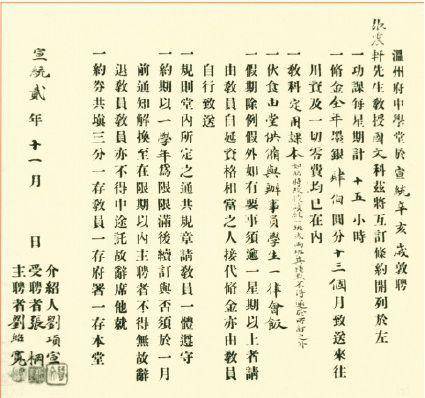 溫州府中學堂於宣統辛亥歲敦聘
張震軒先生教授國文科茲將互訂條約開列於左
一功課每星期計十五小時
一脩金全年墨銀肆佰圓分十三個月致送來往
川資及一切零費均已在內
一教科定用課本
一伙食由堂供備與辦事員學生一律會飯
一假期除例假外如有要事須逾一星期以上者請
由教員自延資格相當之人接代脩金亦由教員
自行致送
一規則堂內所定之通共規章請教員一體遵守
一約期以一學年為限限滿後續訂與否須於一月
前通知解換至在限期以內主聘者不得無故辭
退教員教員亦不得中途託故辭席他就
一約券共填三分一存教員一存府署一存本堂
宣統貳年十一月 日
介紹人劉項宣
受聘者張棡
主聘者劉紹寬